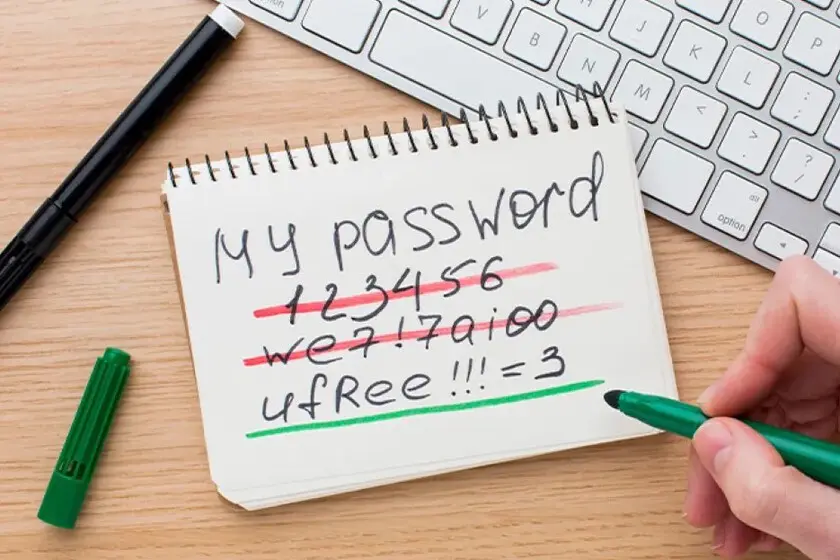 O P
H J K L : ;
V B N M < , > . ? /
alt
option
My password
123456
we7!7aioo
ufRee!!!=3